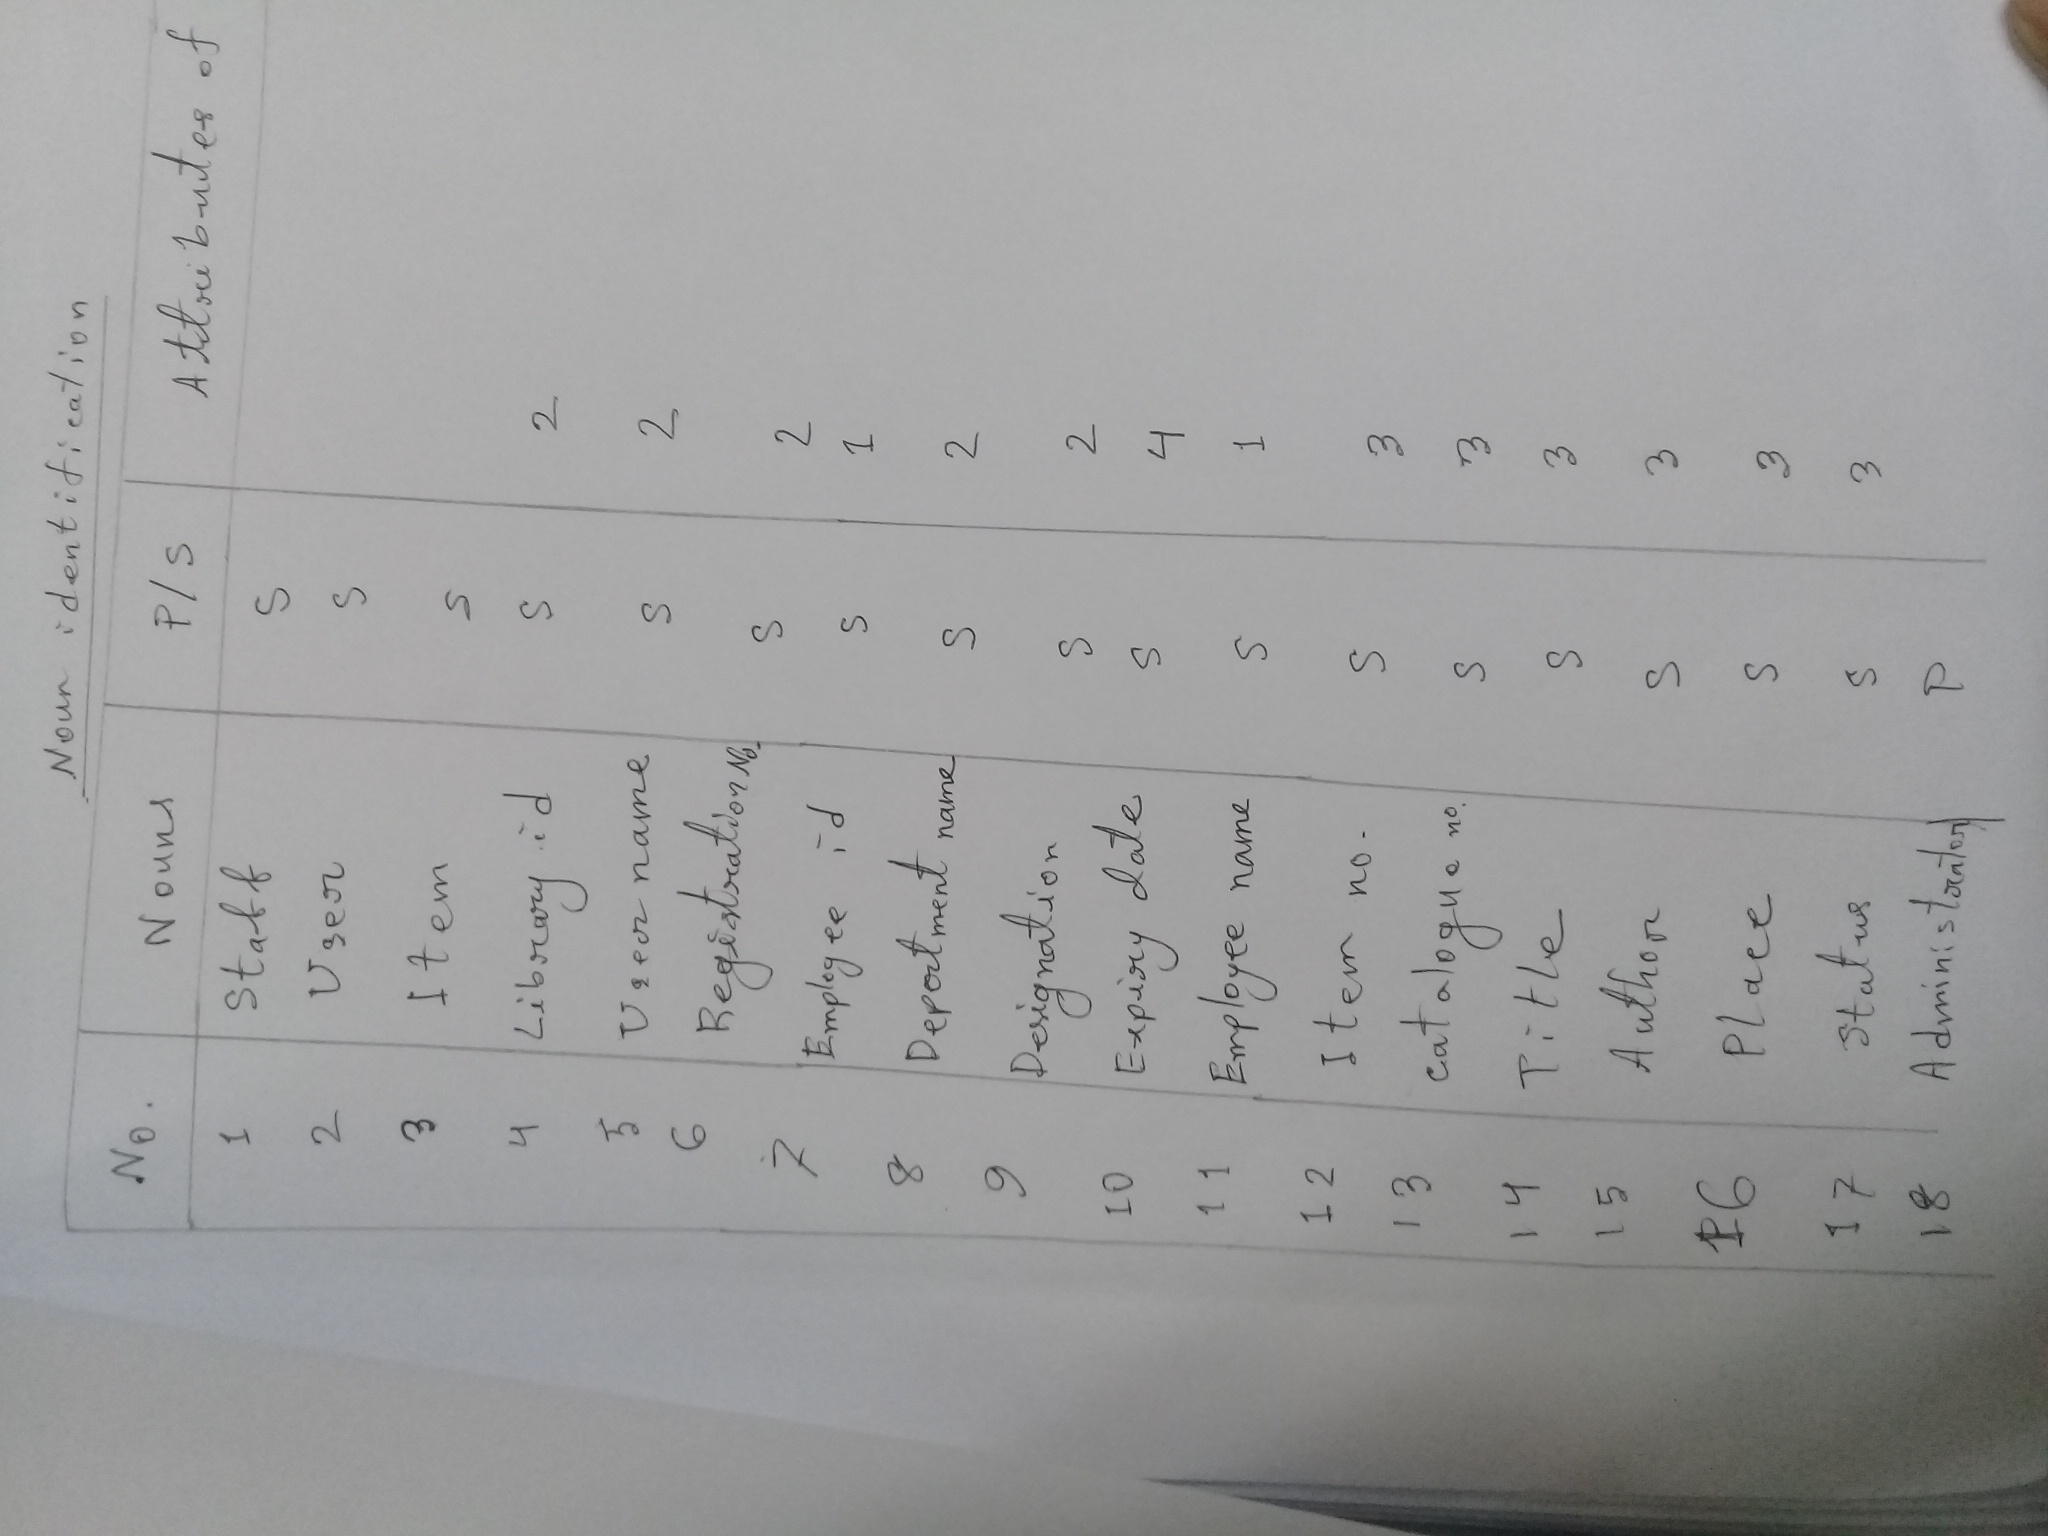 Noun identification
No. Nouns P/S Attributes of
1 Staff S
2 User S
3 Item S
4 Library id S 2
5 User name S 2
6 Registration No. S 2
7 Employee id S 1
8 Department name S 2
9 Designation S 2
10 Expiry date S 4
11 Employee name S 1
12 Item no. S 3
13 catalogue no. S 3
14 Title S 3
15 Author S 3
16 Place S 3
17 Status S 3
18 Administrator P